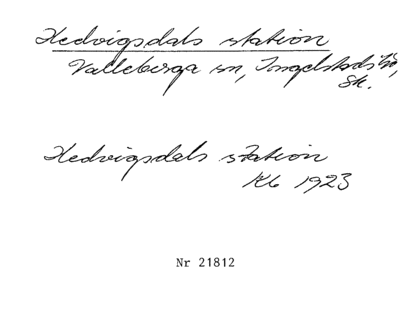 Hedvigsdals station
Valleberga sn, Ingelstads hd,
Sk.
Hedvigsdals station
Kb 1923
Nr 21812